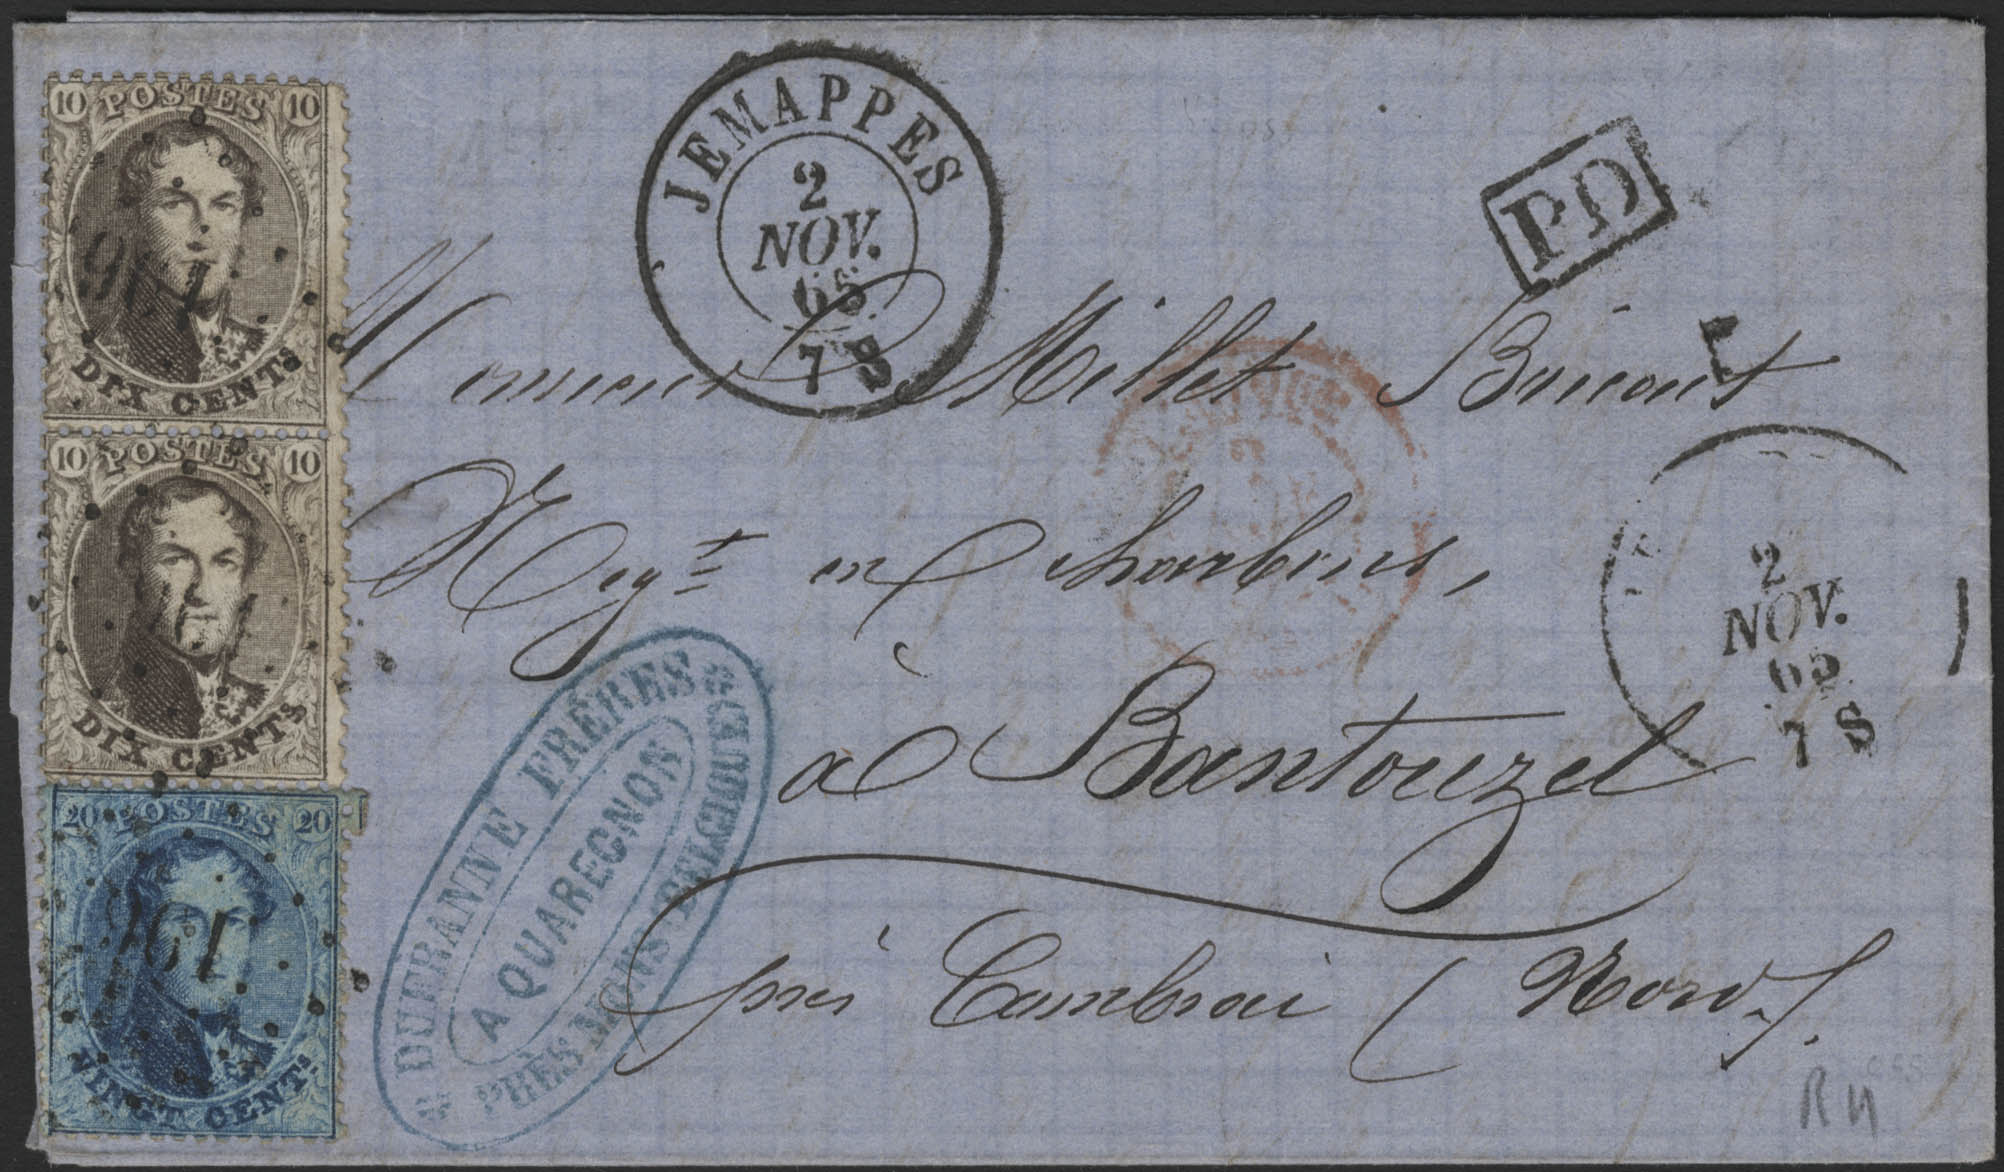 10 POSTES 10
DIX CENTS
10 POSTES 10
DIX CENTS
20 POSTES 20
VINGT CENTS
JEMAPPES
2
NOV.
65
7 S
P.D
Monsieur Millet
Negt en charbons,
à Bantouzel
près Cambrai (Nord).
2
NOV.
65
7 S
DUFRANNE FRÈRES
A QUAREGNON
PRÈS MONS (BELGIQUE)